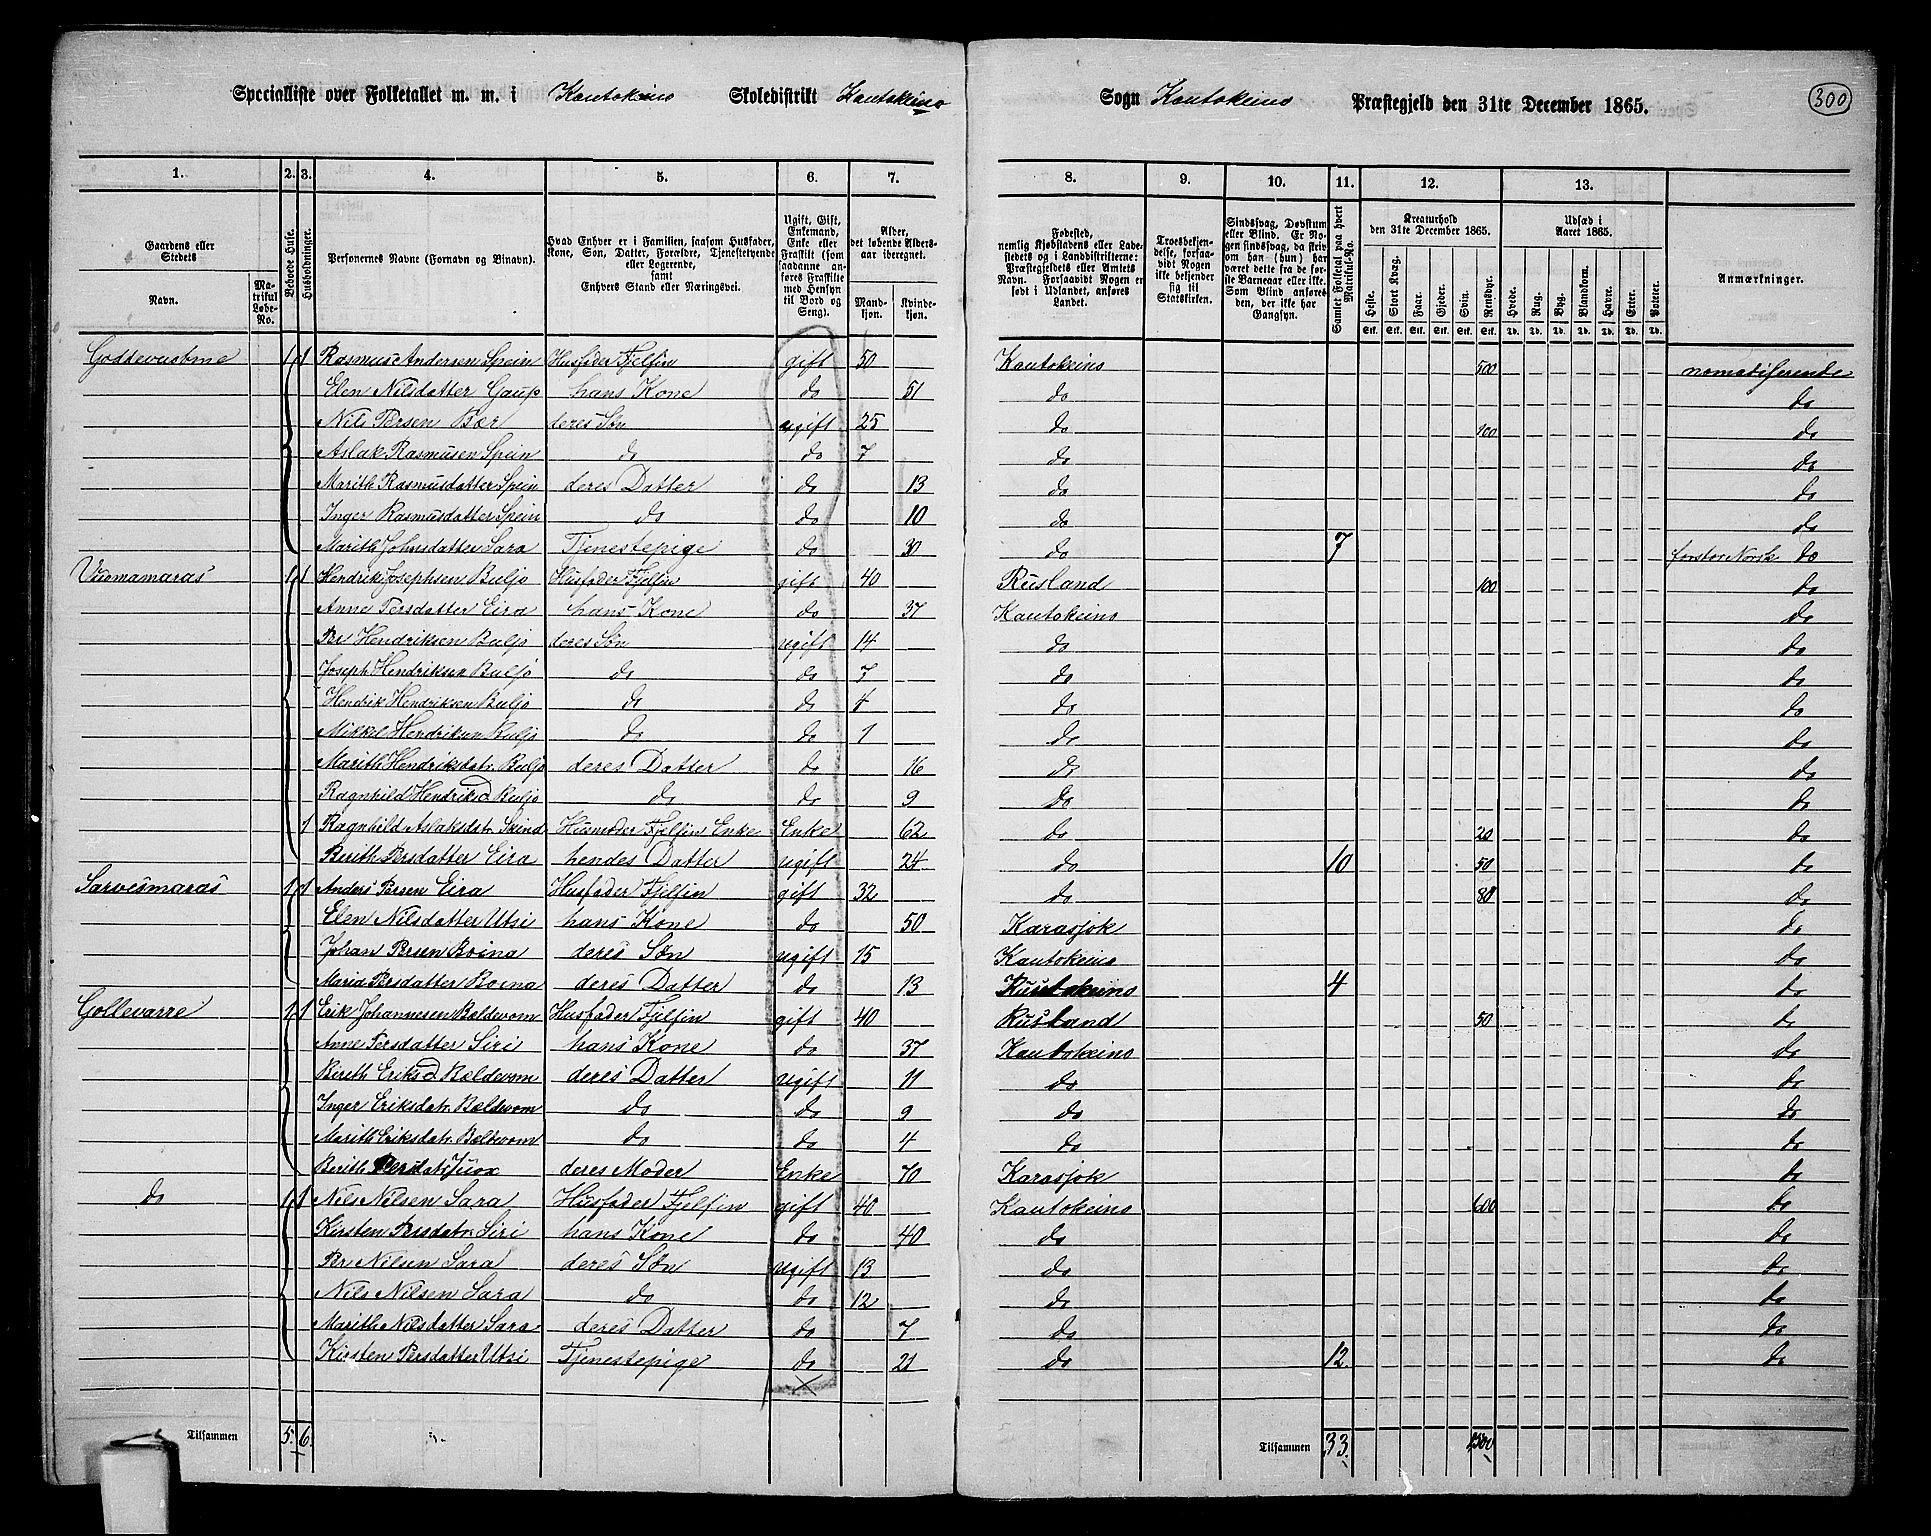 Specialliste over Folketallet m. m. i Kautokeino Skoledistrikt Kautokeino Sogn Kautokeino Præstegjeld den 31te December 1865. 300
1. 2. 3. 4. 5. 6. 7. 8. 9. 10. 11. 12. 13.
Gaardens eller Stedets Navn. Matrikul Løbe-No. Beboede Huse. Husholdninger. Personernes Navne (Fornavn og Binavn). Hvad Enhver er i Familien, saasom Husfader, Kone, Søn, Datter, Forældre, Tjenestetyende eller Logerende, samt Enhvers Stand eller Næringsvei. Ugift, Gift, Enkemand, Enke eller Fraskilt (som saadanne anføres Fraskilte med Hensyn til Bord og Seng). Alder, det løbende Alders-aar iberegnet. Mand-kjøn. Kvinde-kjøn. Fødested, nemlig Kjøbstadens eller Ladestedets og i Landdistrikterne: Præstegjeldets eller Amtets Navn. Forsaavidt Nogen er født i Udlandet, anføres Landet. Troesbekjendelse, forsaavidt Nogen ikke bekjender sig til Statskirken. Sindssvag, Døvstum eller Blind. Er Nogen sindssvag, da skrives om han (hun) har været dette fra de første Barneaar eller ikke. Som Blind anføres den, der ikke har Gangsyn. Samlet Folketal paa hvert Matrikul-No. Kreaturhold den 31te December 1865. Heste. Stort Kvæg. Faar. Gjeder. Svin. Rensdyr. Udsæd i Aaret 1865. Hvede. Rug. Byg. Blandkorn. Havre. Erter. Poteter. Anmærkninger.
Goddevuobme 1 1 Rasmus Andersen Spein Husfader Fjelfin gift 50 Kautokeino 500 nomadiserende
Elen Nilsdatter Gaup hans Kone do 51 do do
Nils Persen Bær deres Søn ugift 25 do 100 do
Aslak Rasmusen Spein do do 7 do do
Marith Rasmusdatter Spein deres Datter do 13 do do
Inger Rasmusdatter Spein do do 10 do do
Marith Johnsdatter Sara Tjenestepige do 30 do 7 forstor Norsk do
Vuomamaras 1 1 Hendrik Josephsen Buljo Husfader Fjelfin gift 40 Rusland 100 do
Anne Persdatter Eira hans Kone do 37 Kautokeino do
Per Hendriksen Buljo deres Søn ugift 14 do do
Joseph Hendriksen Buljo do do 7 do do
Hendrik Hendriksen Buljo do do 4 do do
Mikkel Hendriksen Buljo do do 1 do do
Marith Hendriksdatr. Buljo deres Datter do 16 do do
Ragnhild Hendriksd. Buljo do do 9 do do
1 Ragnhild Aslaksdtr. Skind Husmoder Fjelfin Enke Enke 62 do 20 do
Berith Persdatter Eira hendes Datter ugift 24 do 10 50 do
Sarvesmaras 1 1 Anders Persen Eira Husfader Fjelfin gift 32 do 80 do
Elen Nilsdatter Utsi hans Kone do 50 Karasjok do
Johan Persen Boina deres Søn ugift 15 Kautokeino do
Maria Persdatter Boina deres Datter do 13 Kautokeino 4 do
Gollevarre 1 1 Erik Johannesen Bældevom Husfader Fjelfin gift 40 Rusland 50 do
Anne Persdatter Siri hans Kone do 37 Kautokeino do
Berith Eriksd. Bældevom deres Datter ugift 11 do do
Inger Eriksdatr. Bældevom do do 9 do do
Marith Eriksdatr. Bældevom do do 4 do do
Berith Persdatr. Juox deres Moder Enke 70 Karasjok do
do 1 1 Nils Nilsen Sara Husfader Fjelfin gift 40 Kautokeino 600 do
Kirsten Persdatr. Siri hans Kone do 40 do do
Per Nilsen Sara deres Søn ugift 13 do do
Nils Nilsen Sara do do 12 do do
Marith Nilsdatter Sara deres Datter do 7 do do
Kirsten Persdatter Utsi Tjenestepige do 21 do 12 do
Tilsammen 5. 6. Tilsammen 33. 1500